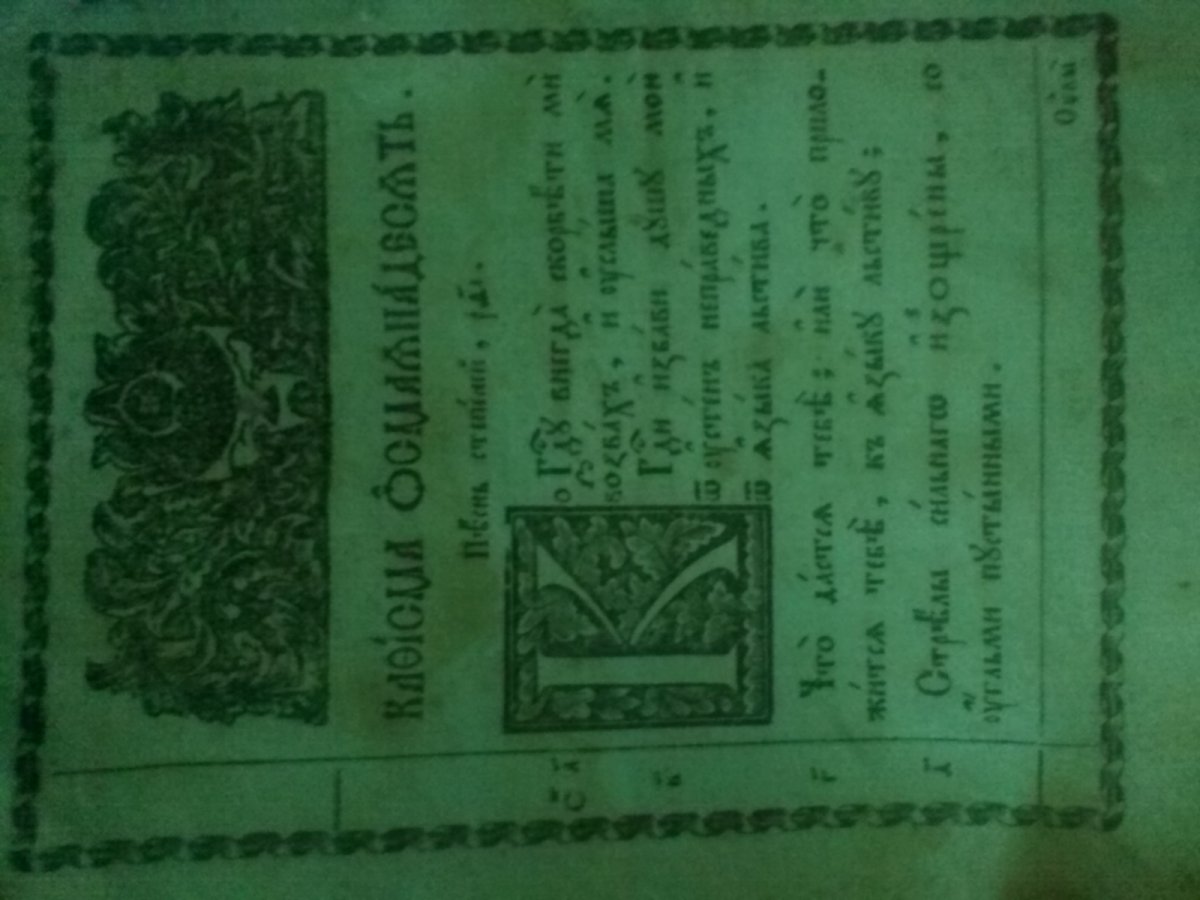 КАѲІ́СМА Ѻ҆СМАѦНА́ДЕСѦТЬ.
Пѣ́снь степе́ней, рѳ҃і.
Ко Гдⷭ҇ꙋ внегда̀ скорбѣ́ти мѝ
воззва́хъ, и҆ ᲂу҆слы́ша мѧ̀.
Гдⷭ҇и и҆зба́ви дꙋ́шꙋ мою̀
ѿ ᲂу҆сте́нъ непра́ведныхъ, и҆
ѿ ѧ҆зы́ка льсти́ва.
Что̀ да́стсѧ тебѣ̀; и҆лѝ что̀ прило-
жи́тсѧ тебѣ̀, къ ѧ҆зы́кꙋ льсти́вꙋ;
Стрѣ́лы си́льнагѡ и҆зѡщре́ны, со
ᲂу҆́гльми пꙋсты́нными.
С҃
а҃
в҃
г҃
д҃